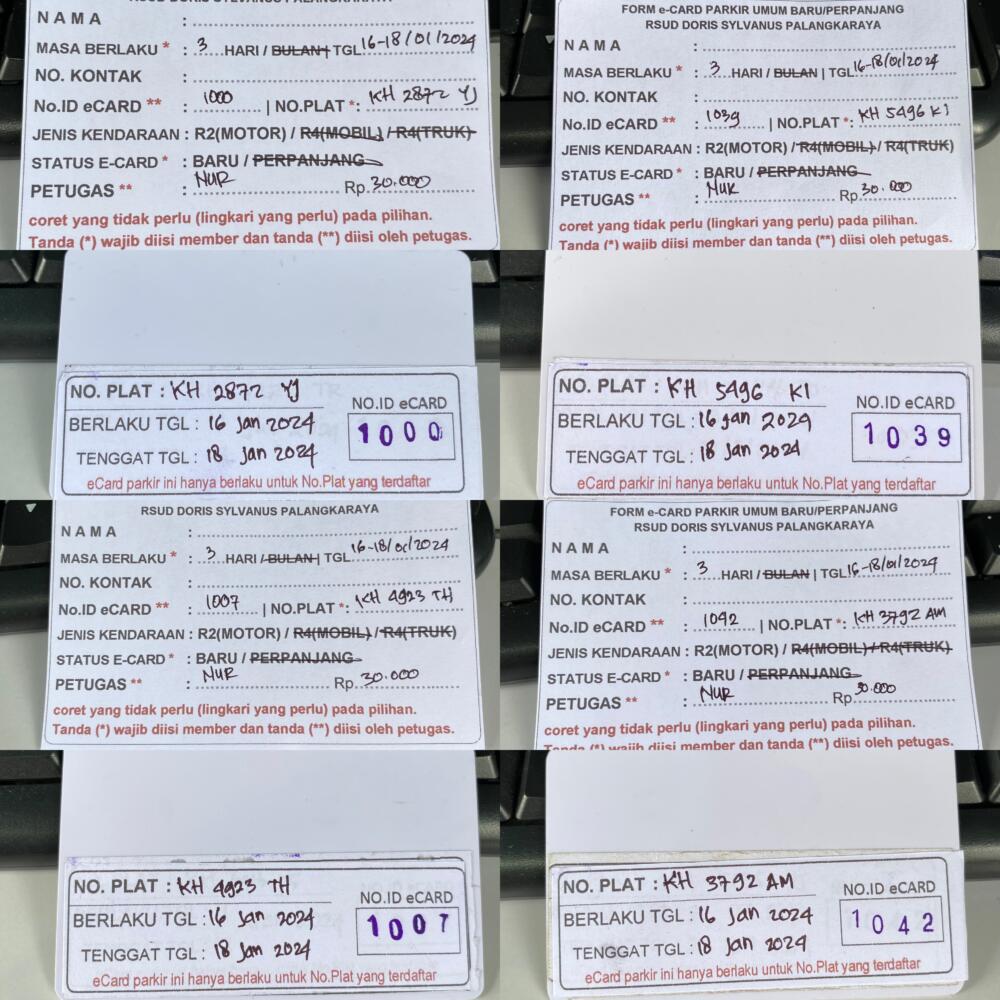 RSUD DORIS SYLVANUS PALANGKARAYA
NAMA :
MASA BERLAKU * : 3 HARI / BULAN | TGL 16-18/01/2024
NO. KONTAK :
No.ID eCARD ** : 1000 | NO.PLAT *: KH 2872 YJ
JENIS KENDARAAN : R2(MOTOR) / R4(MOBIL) / R4(TRUK)
STATUS E-CARD * : BARU / PERPANJANG
PETUGAS ** : NUR Rp. 30.000
coret yang tidak perlu (lingkari yang perlu) pada pilihan.
Tanda (*) wajib diisi member dan tanda (**) diisi oleh petugas.
FORM e-CARD PARKIR UMUM BARU/PERPANJANG
RSUD DORIS SYLVANUS PALANGKARAYA
NAMA :
MASA BERLAKU * : 3 HARI / BULAN | TGL 16-18/01/2024
NO. KONTAK :
No.ID eCARD ** : 1039 | NO.PLAT *: KH 5496 KI
JENIS KENDARAAN : R2(MOTOR) / R4(MOBIL) / R4(TRUK)
STATUS E-CARD * : BARU / PERPANJANG
PETUGAS ** : NUR Rp. 30.000
coret yang tidak perlu (lingkari yang perlu) pada pilihan.
Tanda (*) wajib diisi member dan tanda (**) diisi oleh petugas.
NO. PLAT : KH 2872 YJ
NO.ID eCARD
BERLAKU TGL : 16 Jan 2024
1000
TENGGAT TGL : 18 Jan 2024
eCard parkir ini hanya berlaku untuk No.Plat yang terdaftar
NO. PLAT : KH 5496 KI
NO.ID eCARD
BERLAKU TGL : 16 Jan 2024
1039
TENGGAT TGL : 18 Jan 2024
eCard parkir ini hanya berlaku untuk No.Plat yang terdaftar
RSUD DORIS SYLVANUS PALANGKARAYA
NAMA :
MASA BERLAKU * : 3 HARI / BULAN | TGL 16-18/01/2024
NO. KONTAK :
No.ID eCARD ** : 1007 | NO.PLAT *: KH 4923 TH
JENIS KENDARAAN : R2(MOTOR) / R4(MOBIL) / R4(TRUK)
STATUS E-CARD * : BARU / PERPANJANG
PETUGAS ** : NUR Rp. 30.000
coret yang tidak perlu (lingkari yang perlu) pada pilihan.
Tanda (*) wajib diisi member dan tanda (**) diisi oleh petugas.
FORM e-CARD PARKIR UMUM BARU/PERPANJANG
RSUD DORIS SYLVANUS PALANGKARAYA
NAMA :
MASA BERLAKU * : 3 HARI / BULAN | TGL 16-18/01/2024
NO. KONTAK :
No.ID eCARD ** : 1042 | NO.PLAT *: KH 3792 AM
JENIS KENDARAAN : R2(MOTOR) / R4(MOBIL) / R4(TRUK)
STATUS E-CARD * : BARU / PERPANJANG
PETUGAS ** : NUR Rp. 30.000
coret yang tidak perlu (lingkari yang perlu) pada pilihan.
Tanda (*) wajib diisi member dan tanda (**) diisi oleh petugas.
NO. PLAT : KH 4923 TH
NO.ID eCARD
BERLAKU TGL : 16 Jan 2024
1007
TENGGAT TGL : 18 Jan 2024
eCard parkir ini hanya berlaku untuk No.Plat yang terdaftar
NO. PLAT : KH 3792 AM
NO.ID eCARD
BERLAKU TGL : 16 Jan 2024
1042
TENGGAT TGL : 18 Jan 2024
eCard parkir ini hanya berlaku untuk No.Plat yang terdaftar